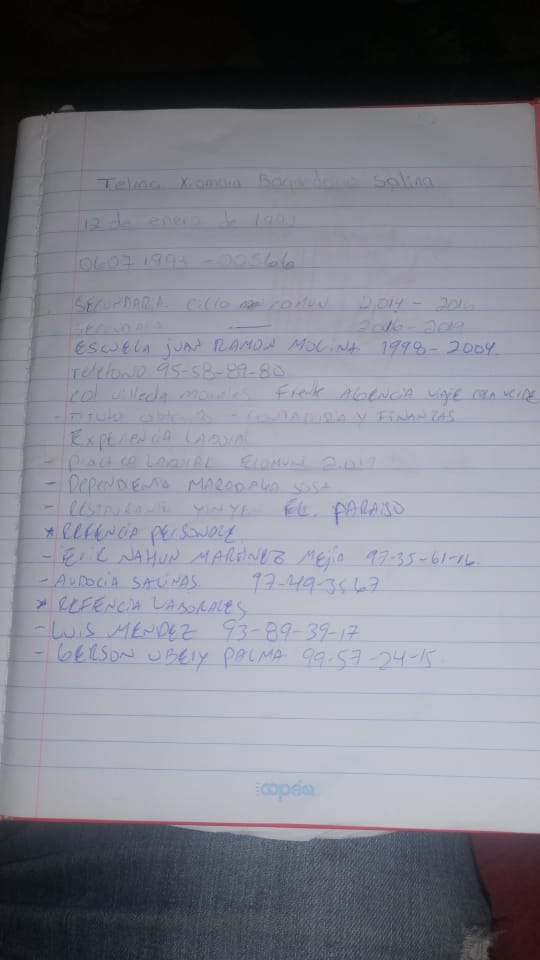 Telma Xiomara Salina
12 de enero de 1993
0607 1993 - 00566
SECUNDARIA ciclo comun 2014 - 2016
2016 - 2019
ESCUELA JUAN RAMON MOLINA 1998 - 2004.
Telefono 95-58-89-80
col villeda morales Frente AGENCIA VIAJE
- TITULO - CONTADURIA Y FINANZAS
EXPERIENCIA LABORAL
- PRACTICA LABORAL 2.019
- DEPENDIENTA
- RESTAURANTE EL PARAISO
* REFENCIA PERSONALE
- ERIK NAHUN MARTINEZ MEJIA 97-35-61-16.
- AUDOCIA SALINAS 97-49-3567
* REFENCIA LABORALES
- LUIS MENDEZ 93-89-39-17
- GERSON UBELY PALMA 99-57-24-15
copán